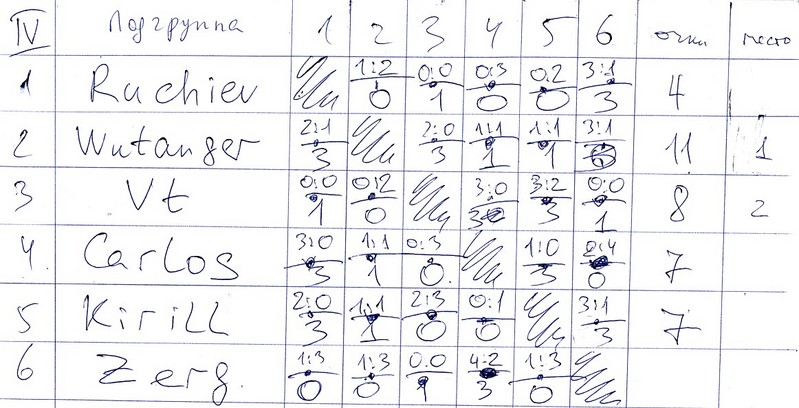 IV Подгруппа 1 2 3 4 5 6 очки место
1 Ruchiev 1:2 0 0:0 1 0:3 0 0:2 0 3:1 3 4
2 Wutanger 2:1 3 2:0 3 1:1 1 1:1 1 3:1 3 11 1
3 Vt 0:0 1 0:2 0 3:0 3 3:2 3 0:0 1 8 2
4. Carlos 3:0 3 1:1 1 0:3 0. 1:0 3 2:4 0 7
5 Kirill 2:0 3 1:1 1 2:3 0 0:1 0 3:1 3 7
6 Zerg. 1:3 0 1:3 0 0:0 1 4:2 3 1:3 0